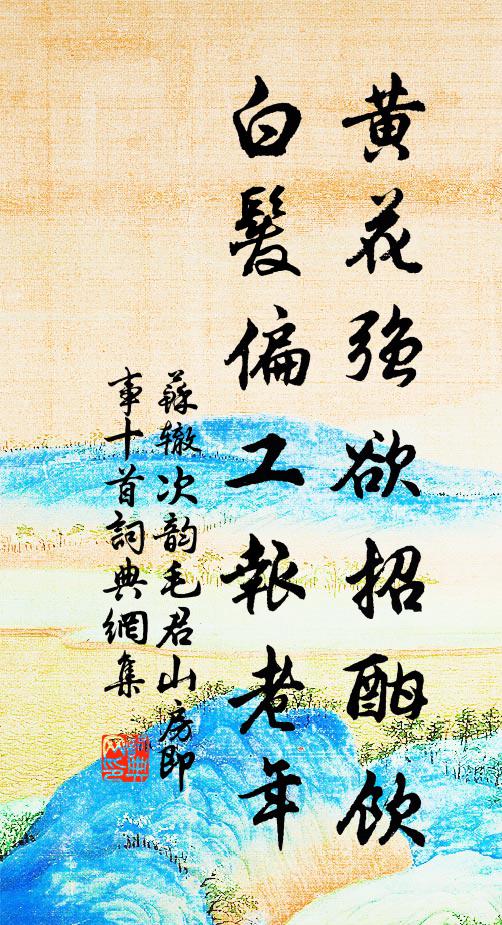 黄花強欲招酣飲
白髮偏工報老年
蘇轍次韵毛君山房即
事十首詞典網集